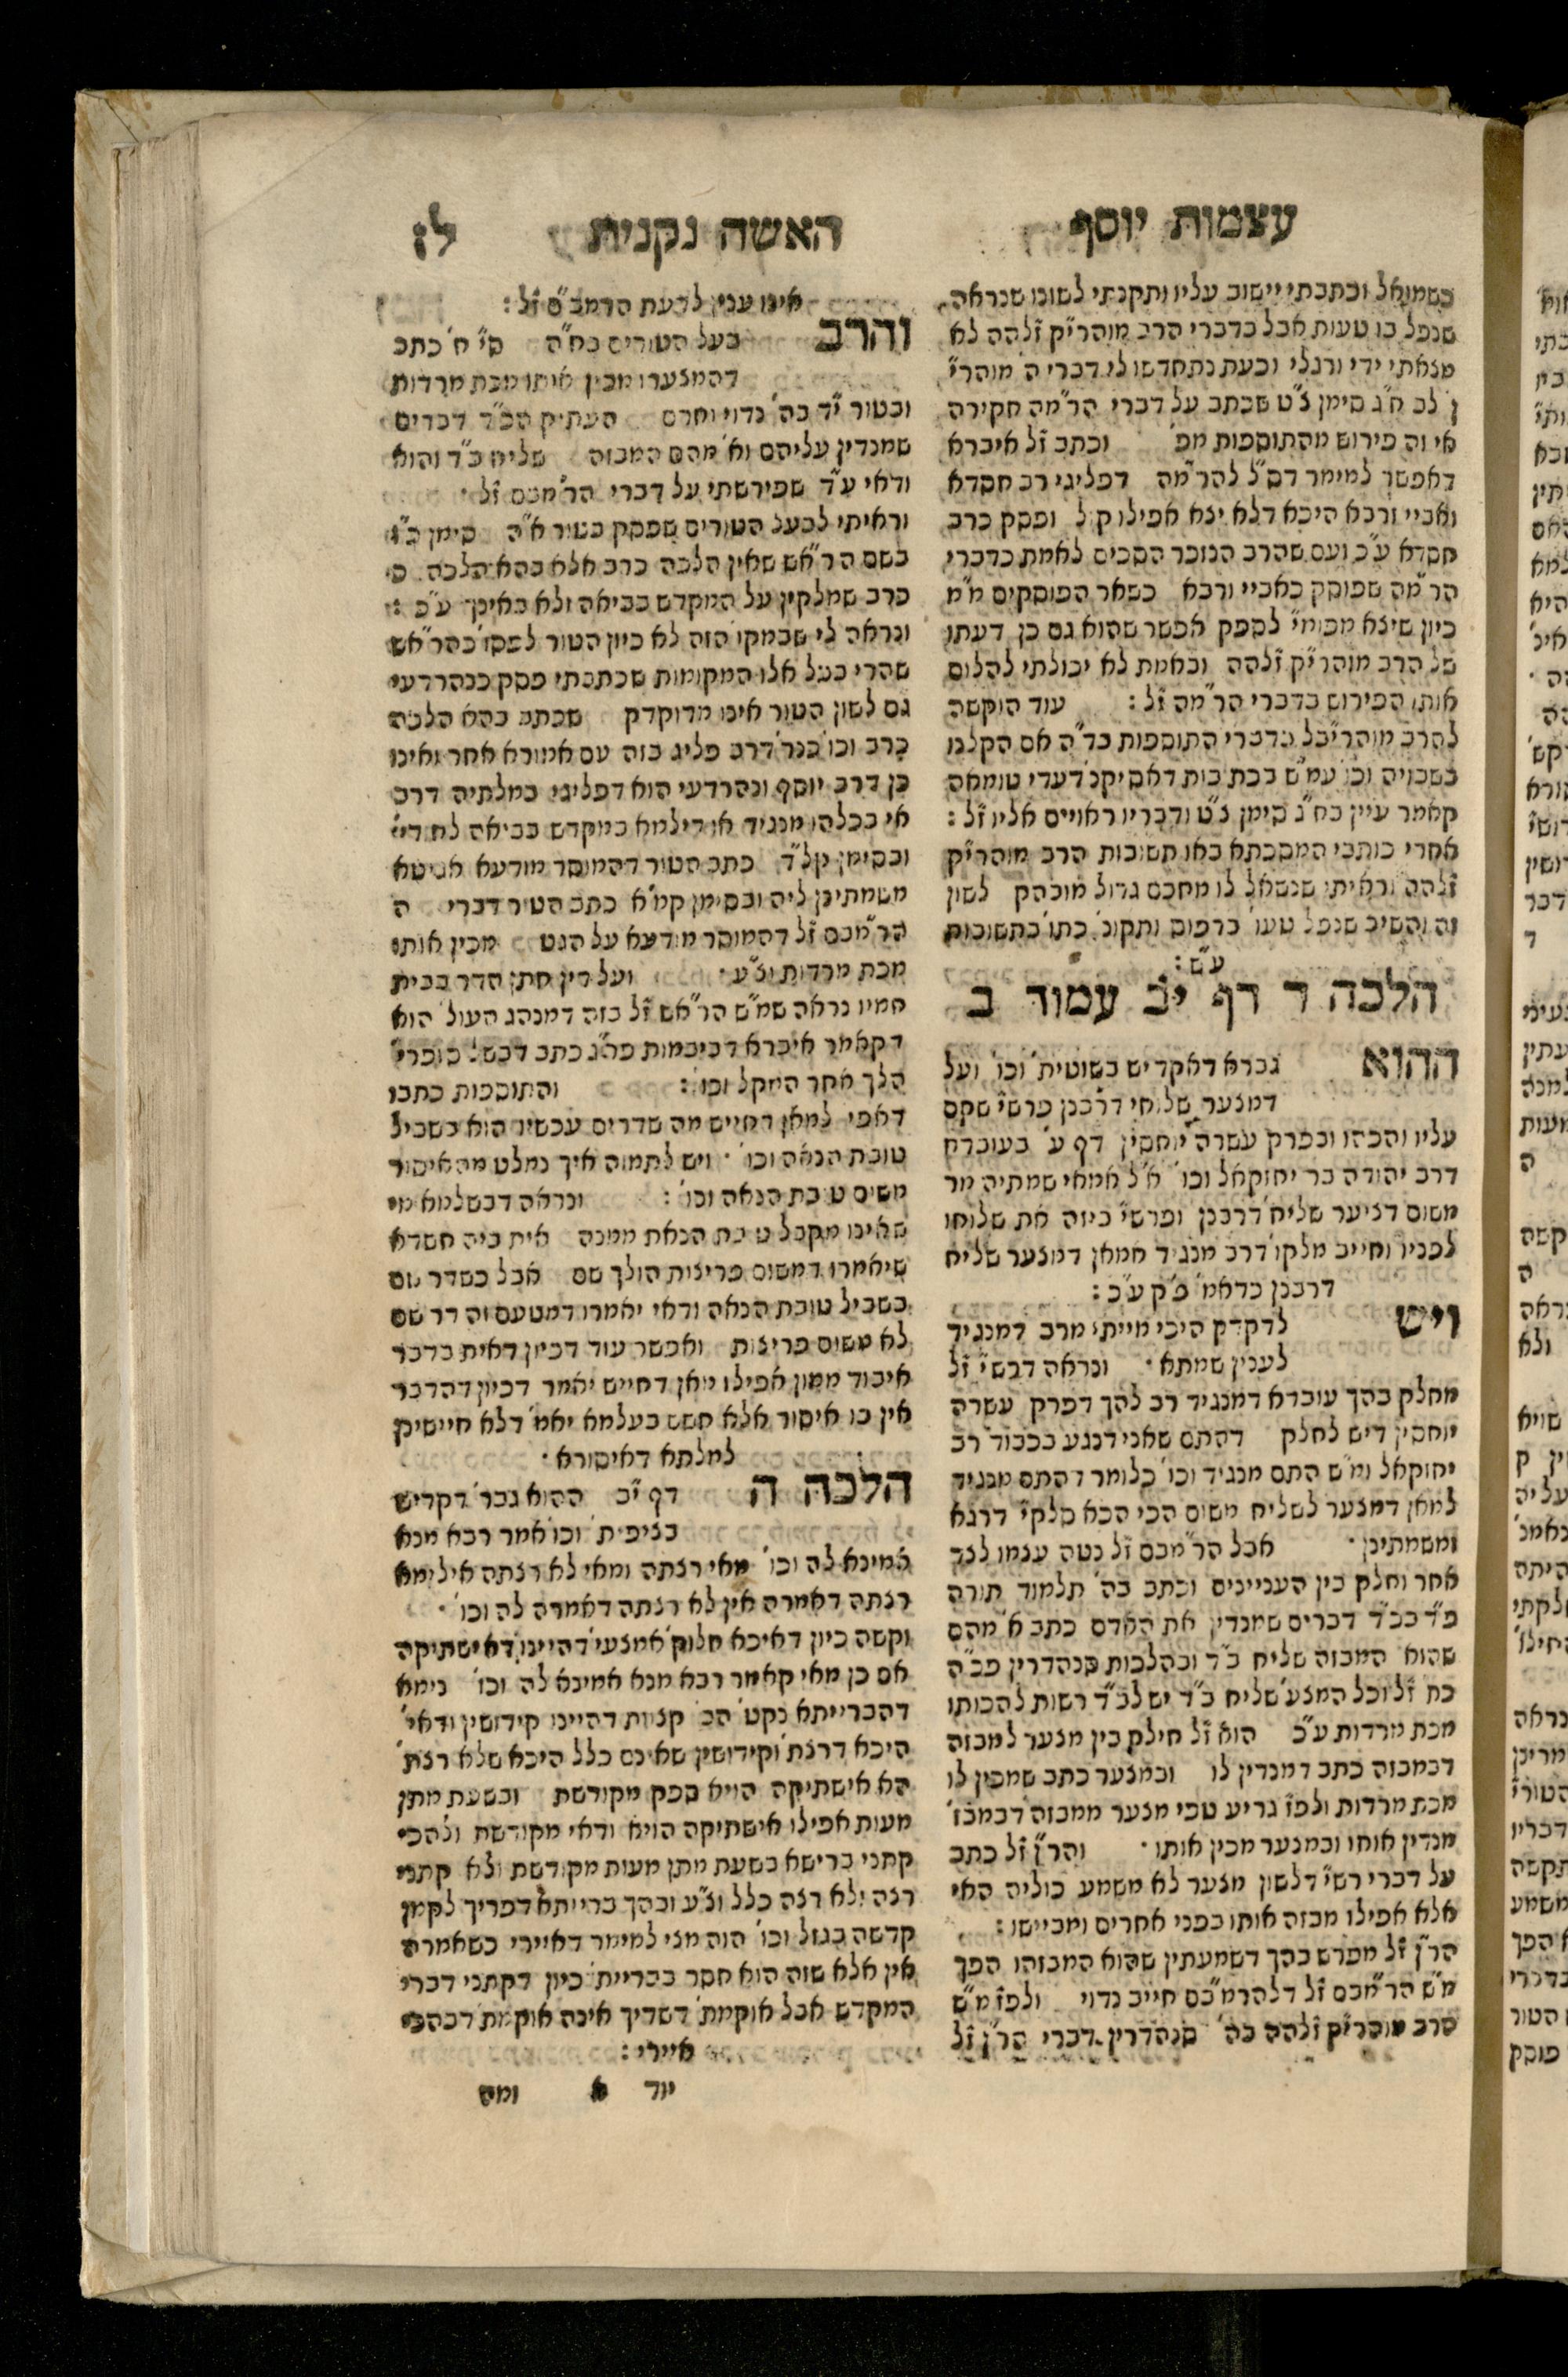 עצמות יוסף
האשה נקנית
לז
כשמואל וכתבתי יישוב עליו ותקנתי לשונו שנראה
שנפל בו טעות אבל בדברי הרב מוהרי"ק זלהה לא
מצאתי ידי ורגלי וכעת נתחדשו לי דברי ה' מוהרי"
ן לב ח"ג סימן צ"ט שכתב על דברי הר"מה חקירה
אי זה פירוש מהתוספות וכתב ז"ל איברא
דאפשר למימר דס"ל להר"מה דפליגי רב חסדא
ואביי ורבא היכא דלא יצא אפילו קול ופסק כרב
חסדא ע"כ ועם שהרב הנזכר הסכים לאמת כדברי
הר"מה שפוסק כאביי ורבא כשאר הפוסקים מ"מ
כיון שיצא מפומי" לספק אפשר שהוא גם כן דעתו
של הרב מוהרי"ק זלהה ובאמת לא יכולתי להלום
אותו הפירוש בדברי הר"מה ז"ל : עוד הוקשה
להרב מוהריבל בדברי התוספות בד"ה אם הקלנו
בשבויה וכו' עמ"ש בכתובות דאסיקנ' דעדי טומאה
קאמר עיין בח"ג סימן צ"ט ודבריו ראויים אליו ז"ל :
אחרי כותבי המסכתא באו תשובות הרב מוהרי"ק
זלהה וראיתי שנשאל לו מחכם גדול מובהק לשון
זה והשיב שנפל טעו' בדפוס ותקונ' כתו' בתשובות
ע"ש :
הלכה ד דף י"ב עמוד ב
ההוא גברא דאקדיש בשוטית' וכו' ועל
דמצער שלוחי דרבנן פרש"י שקם
עליו והכהו ובפרק עשרה יוחסין דף ע' בעובדא
דרב יהודה בר יחזקאל וכו' א"ל אמאי שמתיה מר
משום דציער שליח' דרבנן ופרש"י ביזה את שלוחו
לפניו וחייב מלקו' דרב מנגיד אמאן דמצער שליח
דרבנן כדאמ' פ"ק ע"כ :
ויש לדקדק היכי מייתי מרב דמנגיד
לענין שמתא · ונראה דרש"י ז"ל
מחלק בהך עובדא דמנגיד רב להך דפרק עשרה
יוחסין דיש לחלק דהתם שאני דנגע בכבוד רב
יחזקאל ומ"ש התם מנגיד וכו' כלומר דהתם מנגיד
למאן דמצער לשליח משום הכי הכא סלקי" דרגא
ומשמתינן · אבל הר"מבם ז"ל נטה עצמו לצד
אחר וחלק בין העניינים וכתב בה' תלמוד תורה
פ"ד בכ"ד דברים שמנדין את האדם כתב א' מהם
שהוא המבזה שליח ב"ד ובהלכות סנהדרין פכ"ה
כת' ז"ל וכל המצע' שליח ב"ד יש לב"ד רשות להכותו
מכת מרדות ע"כ הוא ז"ל חילק בין מצער למבזה
דבמבזה כתב דמנדין לו ובמצער כתב שמכין לו
מכת מרדות ולפ"ז גריע טפי מצער ממבזה דבמבז'
מנדין אותו ובמצער מכין אותו · והר"ן ז"ל כתב
על דברי רש"י דלשון מצער לא משמע כוליה האי
אלא אפילו מבזה אותו בפני אחרים ומביישו :
הר"ן ז"ל מפרש בהך דשמעתין שהוא המבזהו הפך
מ"ש הר"מבם ז"ל דלהרמ"בם חייב נדוי ולפ"ז מ"ש
הרב מוהרי"ק זלהה בה' סנהדרין דברי הר"ן ז"ל
אינו ענין לדעת הרמב"ם ז"ל :
והרב בעל הטורים בח"ה סי' ח' כתב
דהמצערו מכין אותו מכת מרדות
ובטור י"ד בה' נדוי וחרם העתיק הכ"ד דברים
שמנדין עליהם וא' מהם המבזה שליח ב"ד והוא
ודאי ע"ד שפירשתי על דברי הר"מבם ז"ל ·
וראיתי לבעל הטורים שפסק בטור א"ה סימן כ"ו
בשם הר"אש שאין הלכה כרב אלא בהא הלכה
כרב שמלקין על המקדש בביאה ולא באינך ע"כ :
ונראה לי שבמקו' הזה לא כיון הטור לפסו' כהר"אש
שהרי בכל אלו המקומות שכתבתי פסק כנהרדעי
גם לשון הטור אינו מדוקדק שכתב בהא הלכה
כרב וכו' כנר' דרב פליג בזה עם אמורא אחר ואינו
כן דרב יוסף ונהרדעי הוא דפליגי במלתיה דרב
אי בכלהו מנגיד או דילמא במקדש בביאה לחודי"
ובסימן קל"ד כתב הטור דהמוסר מודעא אגיטא
משמתינן ליה ובסימן קמ"א כתב הטור דברי ה
הר"מבם ז"ל דהמוסר מודעא על הגט מכין אותו
מכת מרדות וצ"ע · ועל דין חתן הדר בבית
חמיו נראה שמ"ש הר"אש ז"ל בזה דמנהג העול' הוא
דקאמר איברא דביבמות פה"ג כתב דבשל סופרי'
הלך אחר המקל וכו' : והתוספות כתבו
דאפי' למאן דחייש מה שדרים עכשיו הוא בשביל
טובת הנאה וכו' · ויש לתמוה איך נמלט מהאיסור
משום טובת הנאה וכו' : ונראה דבשלמא מי
שאינו מקבל טובת הנאה ממנה אית ביה חשדא
שיאמרו דמשום פריצות הולך שם אבל כשדר שם
בשביל טובת הנאה ודאי יאמרו דמטעם זה דר שם
לא משום פריצות ואפשר עוד דכיון דאית בדבר
איבוד ממון אפילו מאן דחייש יאמר דכיון דהדבר
אין בו איסור אלא חשש בעלמא יאמ' דלא חיישינן
למלתא דאיסורא ·
הלכה ה דף י"ב ההוא גבר' דקדיש
בציפית' וכו' אמר רבא מנא
אמינא לה וכו' מאי רצתה ומאי לא רצתה אילימא
רצתה דאמרה אין לא רצתה דאמרה לה וכו' ·
וקשה כיון דאיכא חלוק' אמצעי' דהיינו דאישתיקה
אם כן מאי קאמר רבא מנא אמינא לה וכו' נימא
דהברייתא נקט' הב' קצוות דהיינו קידושין ודאי'
היכא דרצת' וקידושין שאינם כלל היכא שלא רצת'
הא אישתיקה הויא ספק מקודשת ובשעת מתן
מעות אפילו אישתיקה הויא ודאי מקודשת ולהכי
קתני ברישא בשעת מתן מעות מקודשת ולא קתני
רצה ולא רצה כלל וצ"ע ובהך ברייתא דפריך לקמן
קדשה בגזל וכו' הוה מצי למימר דאיירי כשאמרה
אין אלא שזה הוא חסר בברייתא כיון דקתני דברי
המקדש אבל אוקמת' דשדיך אינה אוקמת' דבהכי
איירי :
יוד א ומה